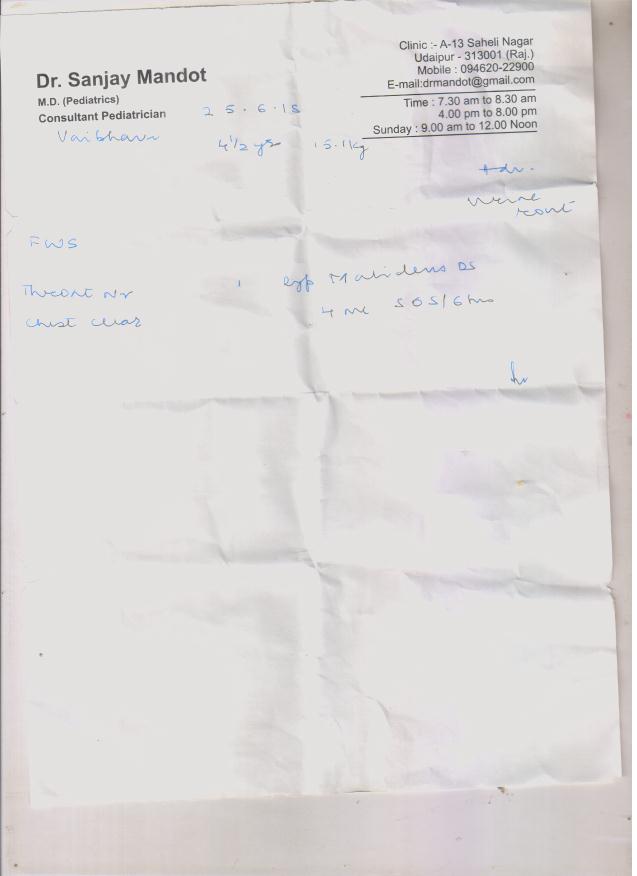 Dr. Sanjay Mandot
M.D. (Pediatrics)
Consultant Pediatrician
Clinic :- A-13 Saheli Nagar
Udaipur - 313001 (Raj.)
Mobile : 094620-22900
E-mail:drmandot@gmail.com
Time : 7.30 am to 8.30 am
4.00 pm to 8.00 pm
Sunday : 9.00 am to 12.00 Noon
25.6.18
Vaibhavi 4½ yrs 15.1kg
Adv.
Urine
rout
FWS
Throat Nr
Chest clear
4 ml SOS/6 hrs